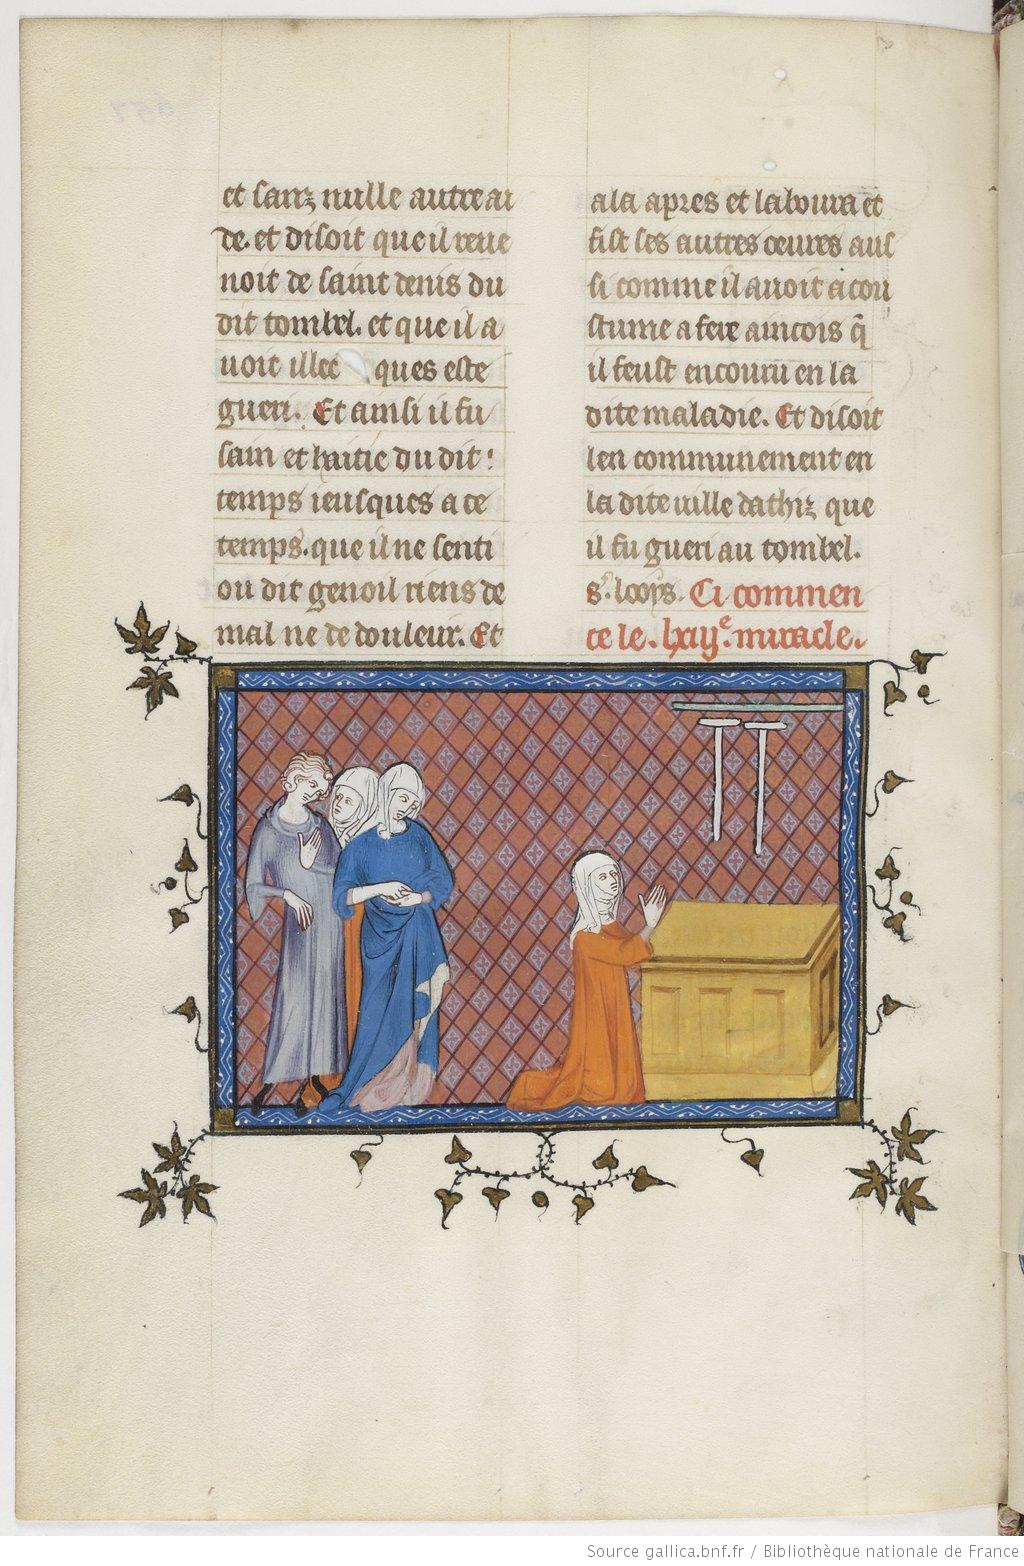 et sanz nulle autre ai
de. et disoit que il reue
noit de saint denis du
dit tombel. et que il a
uoit illec ques este
gueri. Et ainsi il fu
sain et haitie du dit
temps ieusques a ce
temps. que il ne senti
ou dit genoil riens de
mal ne de douleur. Et
ala apres et laboura et
fist ses autres oeures aus
si comme il auoit acou
stume a fere aincois q̃
il feust encouru en la
dite maladie. Et disoit
len communement en
la dite uille dathiz que
il fu gueri au tombel.
s. looys. Ci commen
ce le .lxiiȷ.e miracle.
Source gallica.bnf.fr / Bibliothèque nationale de France